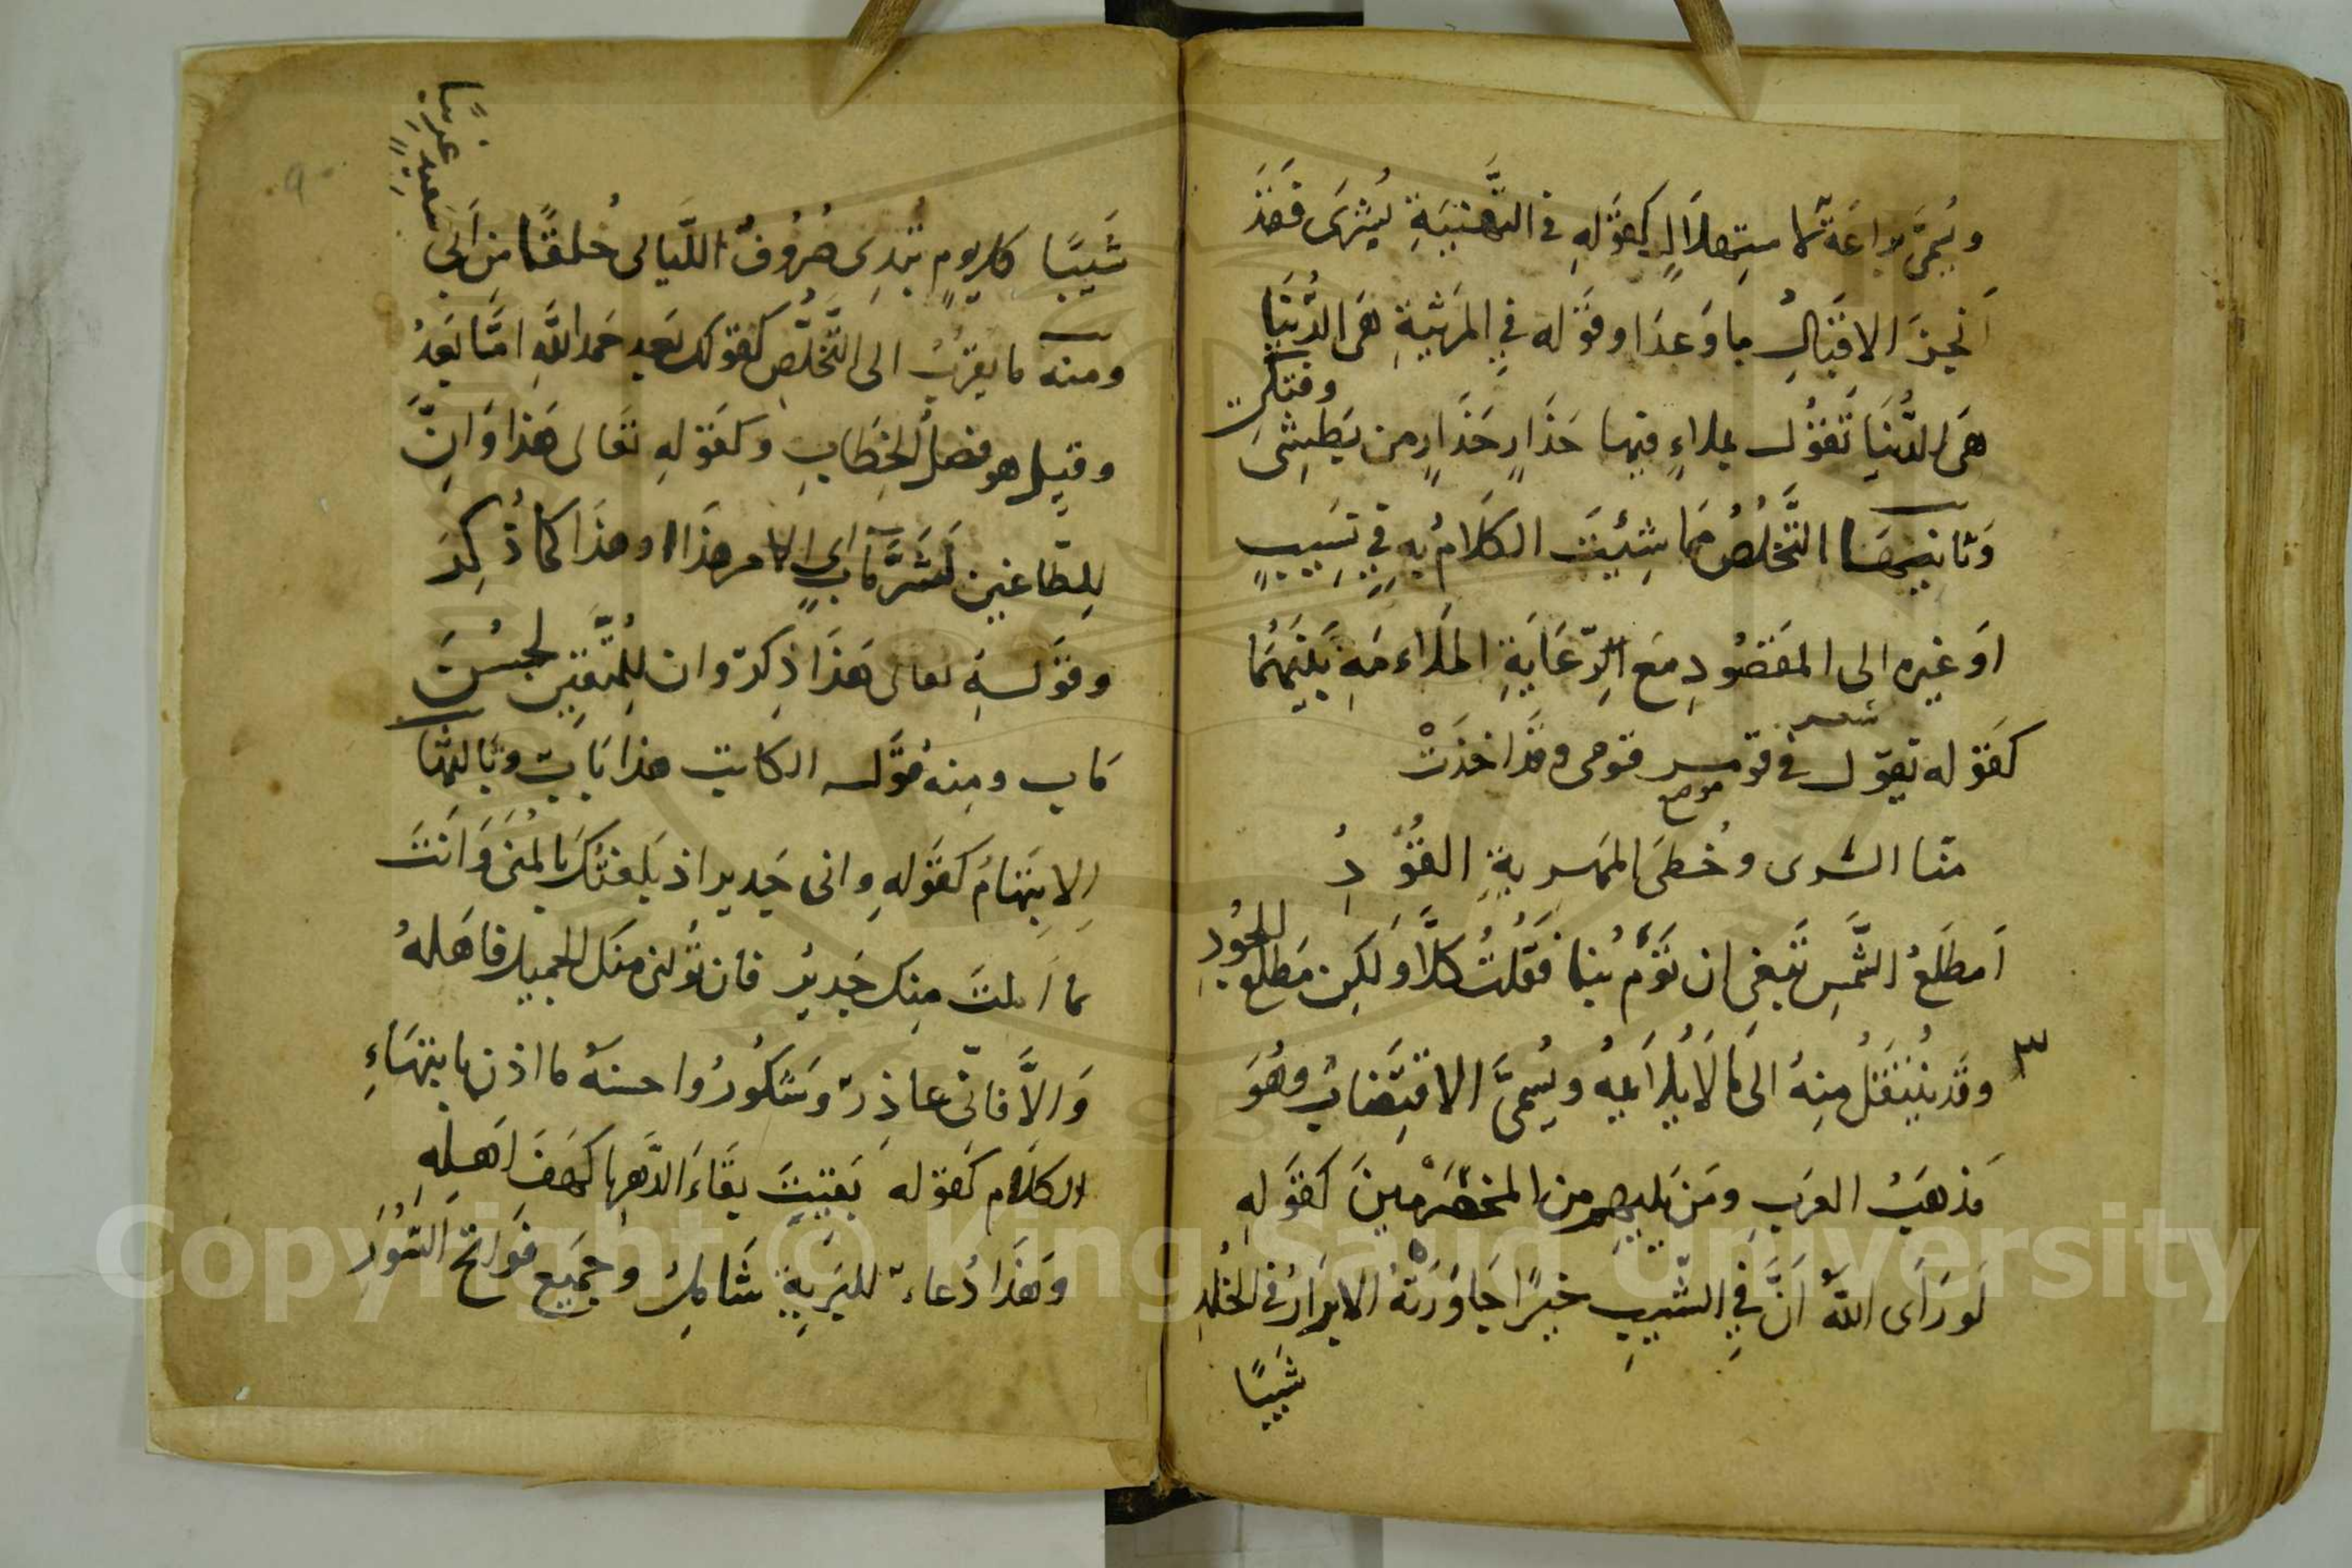 ويُسمَّى براعَةَ الاستِهلالِ كقَوْلهِ في التَّهْنِيَةِ بُشْرَى فَقَدْ
أَنجَزَ الاقبَالُ ما وَعدَا وقوْله في المَرثيةِ هَى الدُّنيَا
هَى الدُّنيَا تَقُوْل بملاءٍ فيها حَذَارِ حَذَارِ من بَطْشِى
وفتكى
وَثانيهَا التَّخَلُّصُ مَمَا شِئْيَت الكلَامُ بهِ فِي تَسِيبٍ
اوَ غيره الى المَقصُودِ مَعَ الرّعَايَةِ المَلَاءمَهِ بَيْنَهُمَا
شعر
كَقوْله تقوّل في قومسٍ قومى وقَدَ اخذَتْ
موضع
منّا السُّرى وخُطَى المَهرِيةِ القُوْدِ
اَمطلَعُ الشَّمسِ تَبغِى ان تَؤمَّ بُنَا فَقُلتُ كَلَّا وَلكِن مَطلع
الجُودِ
٣ وقَد يُنتَقَلُ مِنهُ الى مَا لَا يُلَائِمُه ويُسمىَّ الاقتِضَابُ وهُوَ
مَذهَبُ العرَبِ ومَن يَلِيهِم من المخَضرَمينَ كَقَوْلهِ
لَو رَاَى اللهُ اَنَّ فِي الشّيبِ خيرًا جَاوَرَتهُ الابرَارُ في الخُلدِ
شَيبًا
شَيبًا كل يومٍ تبُدِى صُرُوفُ اللَّيَالى خُلقًا مِن اَبى
سَعيدٍ غرِيبًا
ومنه ما يقرُبُ الى التَّخلُّصِ كقولك بَعد حَمد اللّهِ امّا بَعدُ
وقيل هو فصلُ الخِطَابِ وكَقوْلهِ تعَالى هَذا وَانَّ
لِلطّاغين لَشَرَّ مَآبٍ اى الامر هَذَا او هذَا كما ذُكِرَ
وقوْلهِ تعالى هَذَا ذِكرٌ وان لِلمُتّقِين لحُسْنَ
مَاب ومِنه قوَل الكاتِب هذا بَابٌ وثَالثهَا
الاِنتِهَاءُ كقَوْلهِ وانى جَدير اذ بَلغتُكَ بالمُنَى وَاَنتَ
بما اَملتَ مِنك جَديرُ فان تُولنى منك الجميل فاَهلهُ
وَالاَّ فانّى عاذِرٌ وَشكُورُ واحسنهُ ما اذن بانتهَاءِ
الكلَام كَقوْله بَقيتَ بقَاءَ الدَّهرِ يا كَهفَ اَهلِهِ
وَهَذَا دُعاءٌ للبَريةِ شَامِلُ وجميَع فَواتح السُّوَرِ